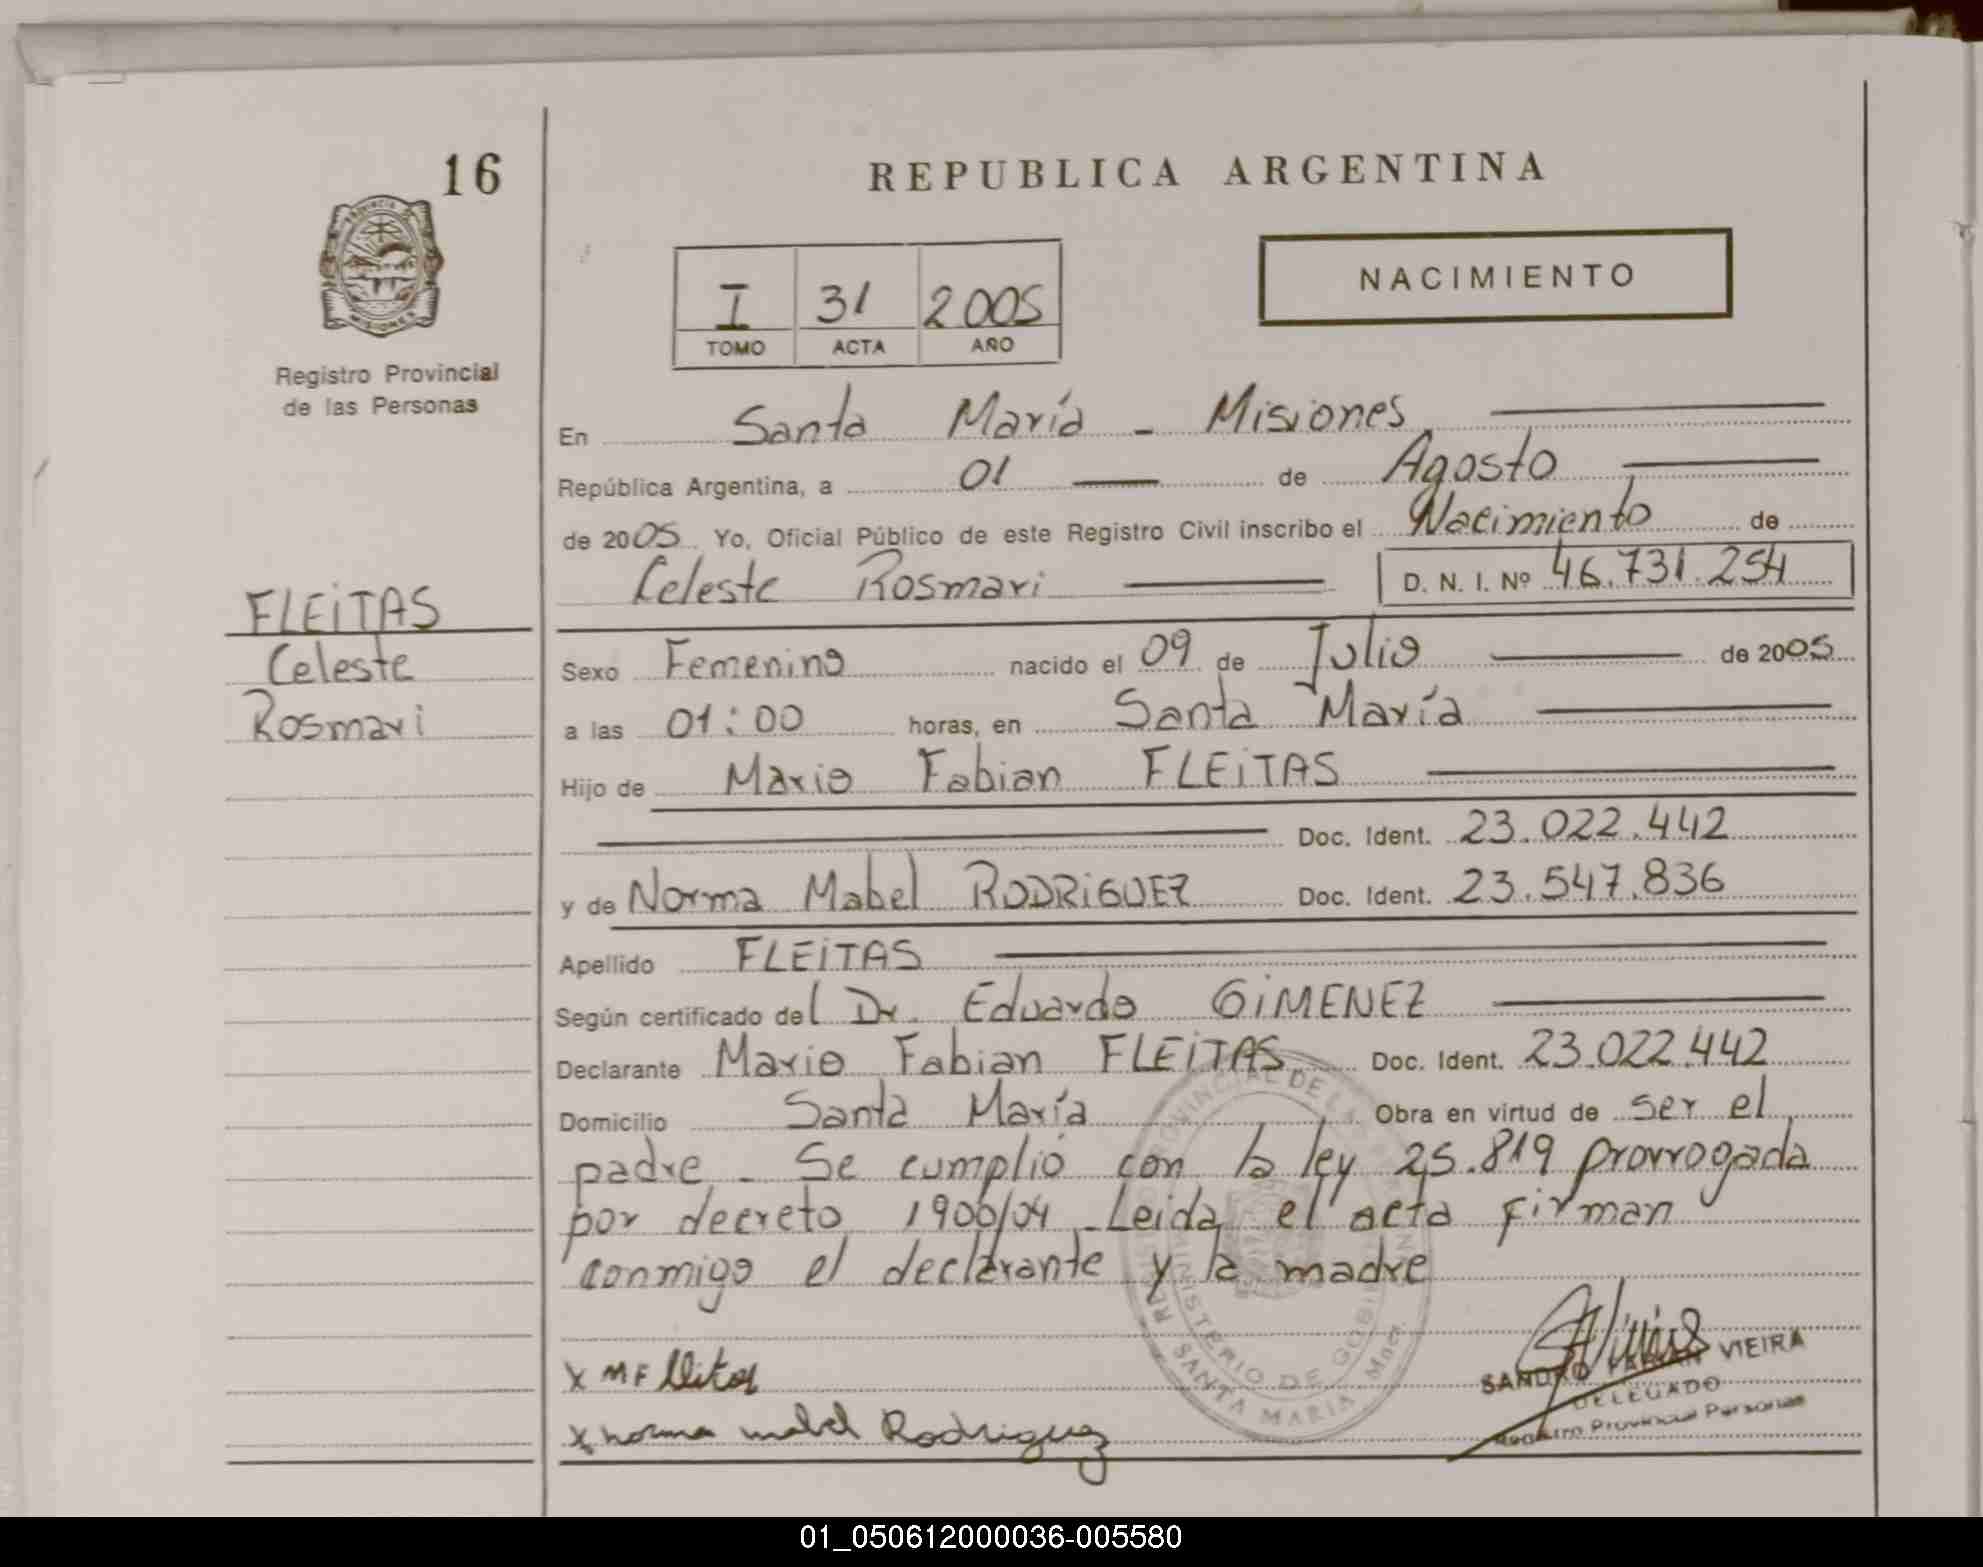 16
PROVINCIA DE
MISIONES
Registro Provincial
de las Personas
FLEITAS
Celeste
Rosmari
REPUBLICA ARGENTINA
I 31 2005
TOMO ACTA AÑO
NACIMIENTO
En Santa María - Misiones
República Argentina, a 01 de Agosto
de 2005 Yo, Oficial Público de este Registro Civil inscribo el Nacimiento de
Celeste Rosmari D. N. I. Nº 46.731.254
Sexo Femenino nacido el 09 de Julio de 2005
a las 01:00 horas, en Santa María
Hijo de Mario Fabian FLEITAS
Doc. Ident. 23.022.442
y de Norma Mabel RODRIGUEZ Doc. Ident. 23.547.836
Apellido FLEITAS
Según certificado del Dr. Eduardo GIMENEZ
Declarante Mario Fabian FLEITAS Doc. Ident. 23.022.442
Domicilio Santa María Obra en virtud de ser el
padre - Se cumplió con la ley 25.819 prorrogada
por decreto 1900/04 - Leida el acta firman
conmigo el declarante y la madre
x MF
x norma mabel Rodriguez
SANDRO FABIAN VIEIRA
DELEGADO
Registro Provincial Personas
REGISTRO PROVINCIAL DE LAS
MINISTERIO DE GOBIERNO
SANTA MARIA Mnes.
01_050612000036-005580